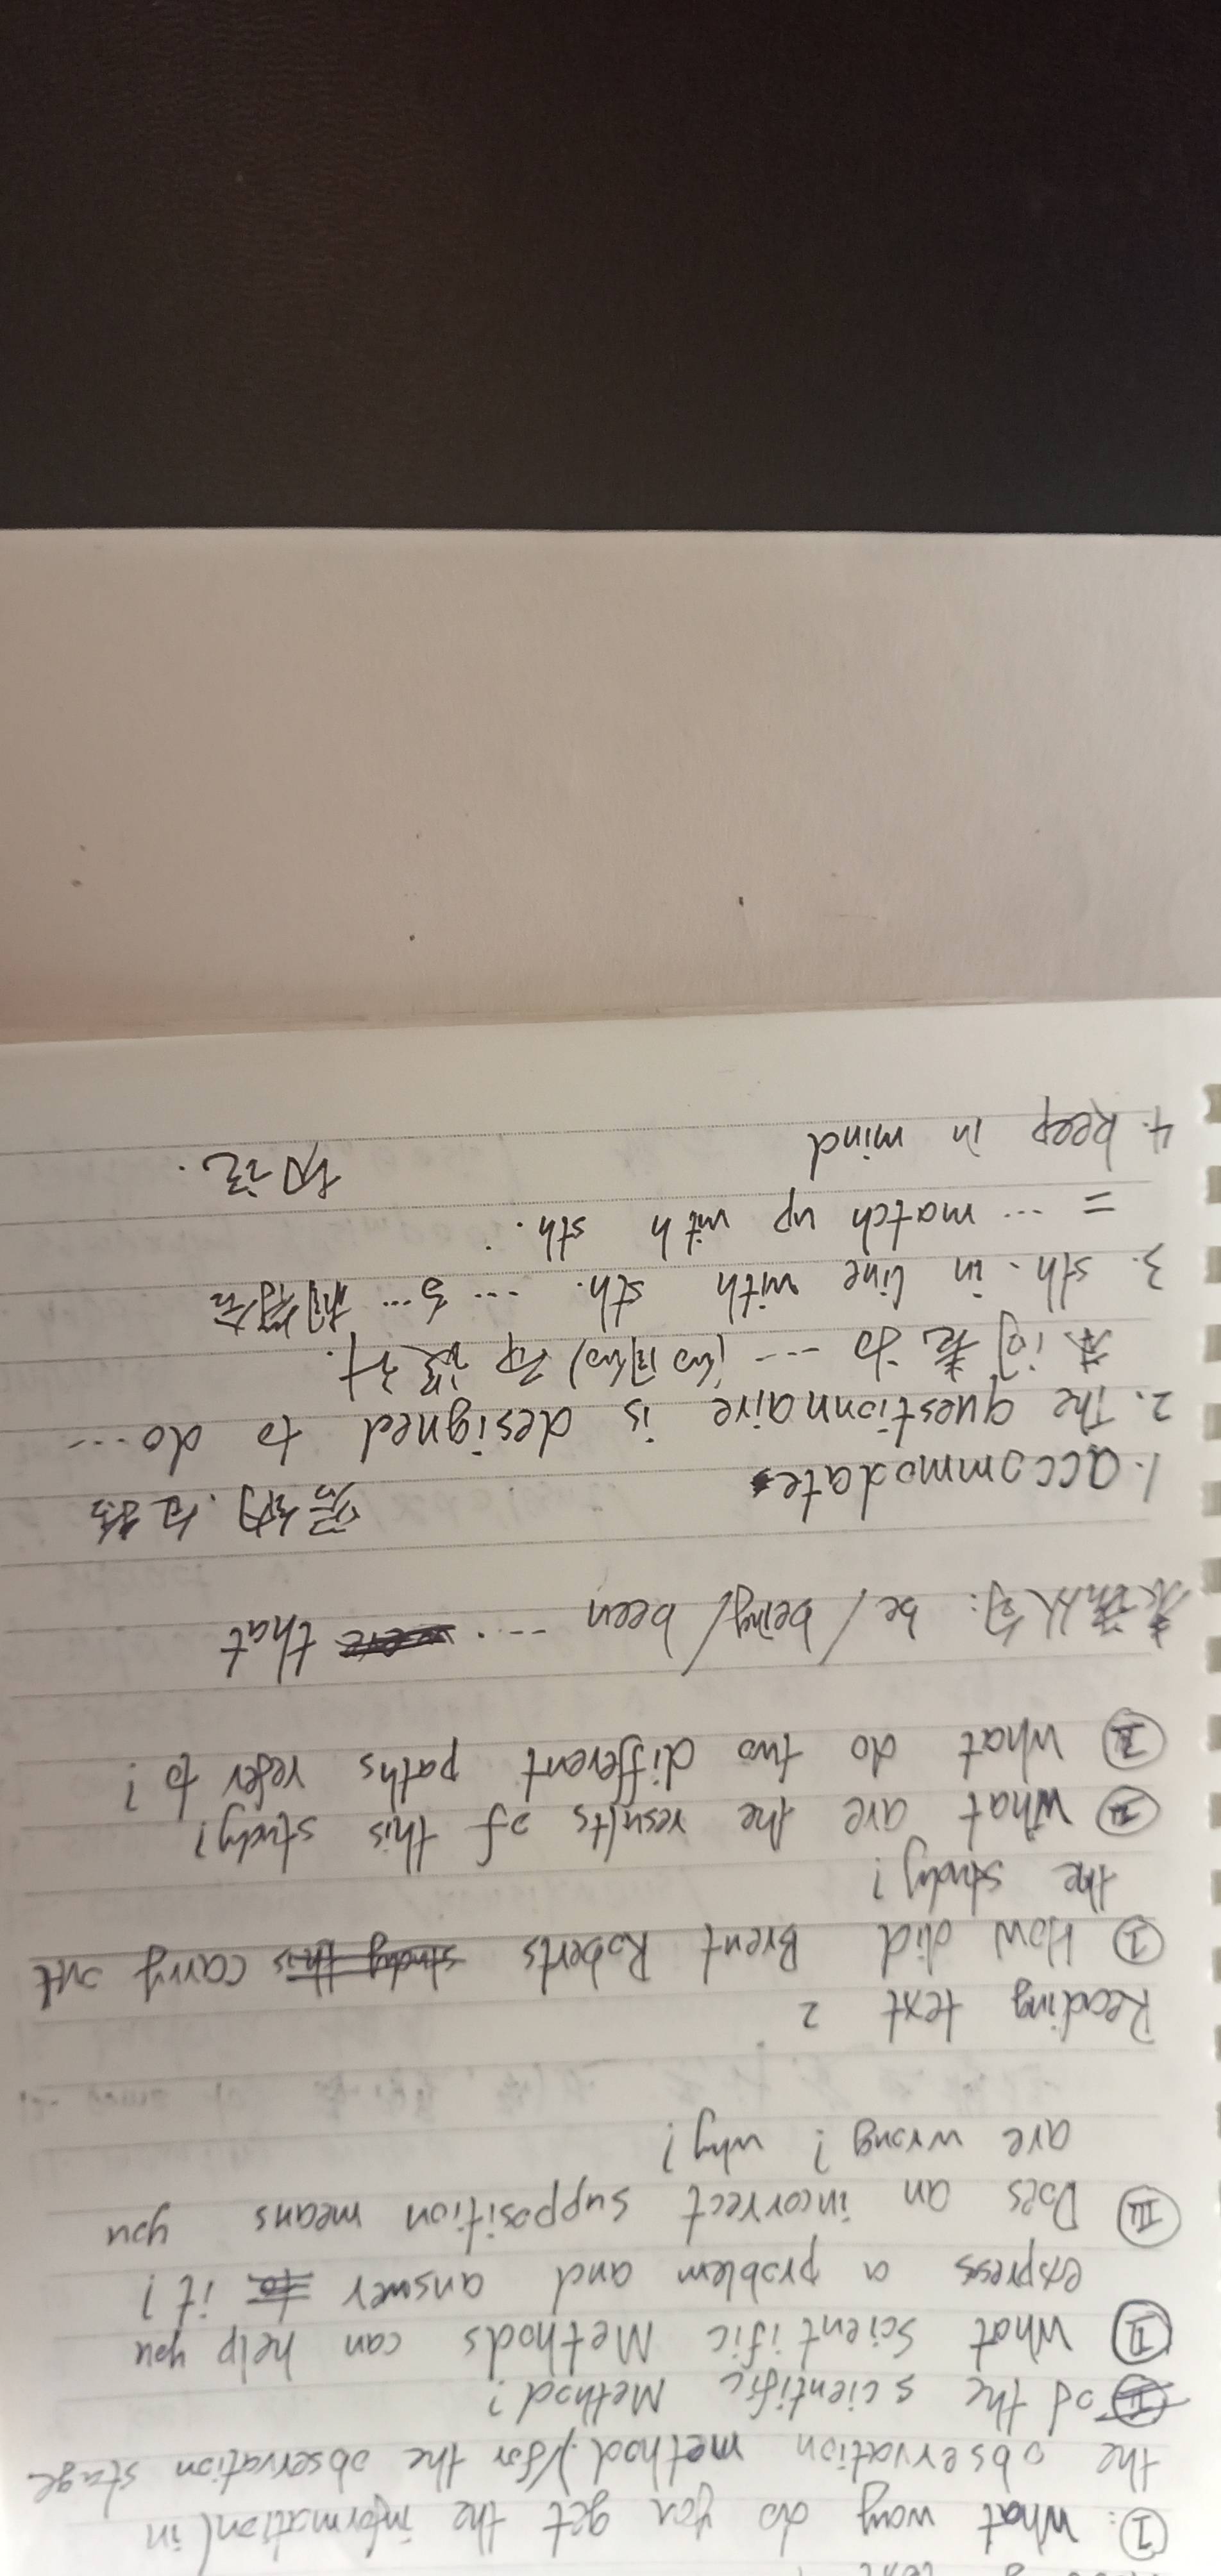 text
①: What way do you get the information (in
the observation method)/for the observation stage
of the scientific Method?
② What scientific Methods can help you
express a problem and answer to it?
③ Does an incorrect supposition means you
are wrong? why?
Reading text 2
① How did Brent Roberts study this carry out
the study?
② What are the results of this study?
③ What do two different paths refer to?
表语从句: be/being/been .... were that
1. accommodate 容纳.包括
2. The questionnaire is designed to do ...
本问卷为 ... (的目的)而设计.
3. sth. in line with sth. ... 与 ... 相符合
= ... match up with sth.
4. keep in mind 切记.